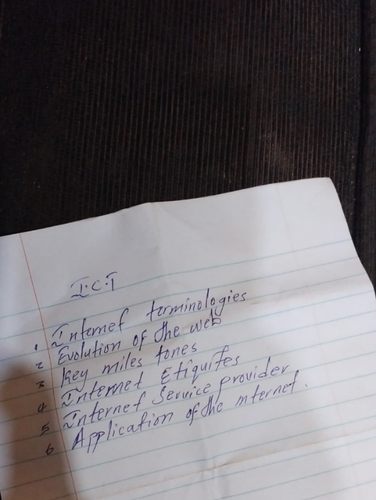 I.C.T
1 Internet terminologies
2 Evolution of the web
3 Key miles tones
4 Internet Etiquites
5 Internet Service provider
6 Application of the nternet.